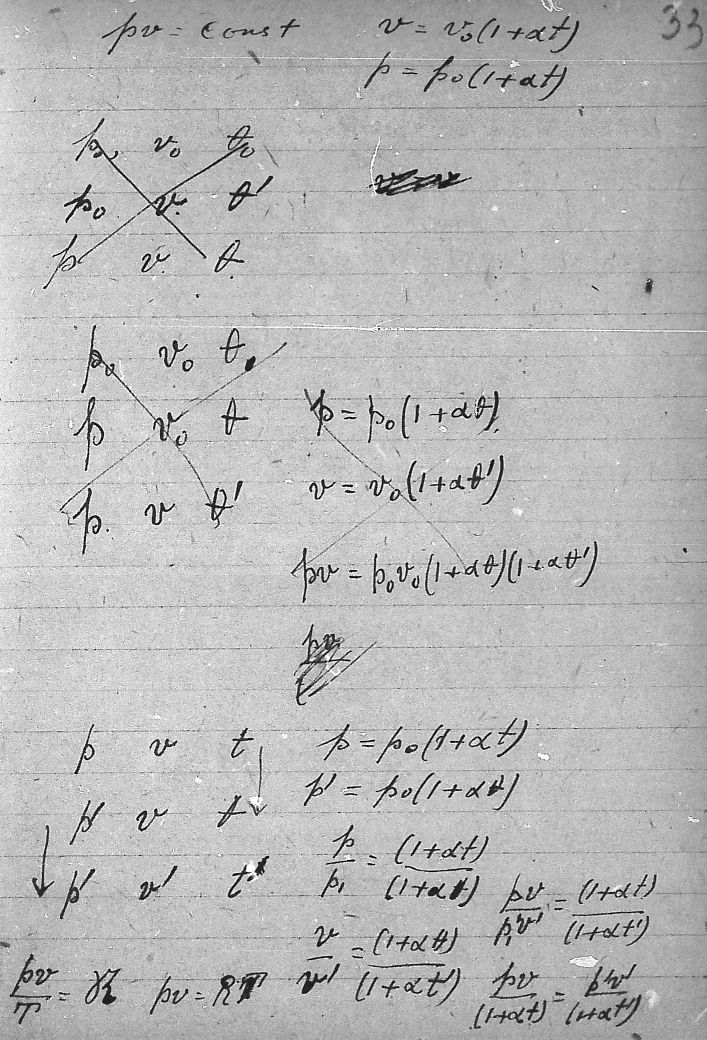 33
pv = const v = v₀(1+αt)
p = p₀(1+αt)
p₀ v₀ t₀
p₀ v θ'
p v θ
p₀ v₀ θ₀
p v₀ θ p = p₀(1+αθ)
p v θ' v = v₀(1+αθ')
pv = p₀v₀(1+αθ)(1+αθ')
p v t p = p₀(1+αt)
p' v θ p' = p₀(1+αθ)
p' v' t' p/p₁ = (1+αt)/(1+αθ) pv/p₁v' = (1+αt)/(1+αt')
v/v' = (1+αθ)/(1+αt') pv/(1+αt) = p'v'/(1+αt')
pv/T = R pv = RT